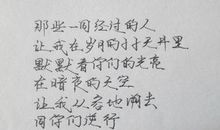 那些一同经过的人
让我在岁月的小小天井里
默默看你们的光亮
在暗夜的天空
让我从容地湖去
同你们逆行